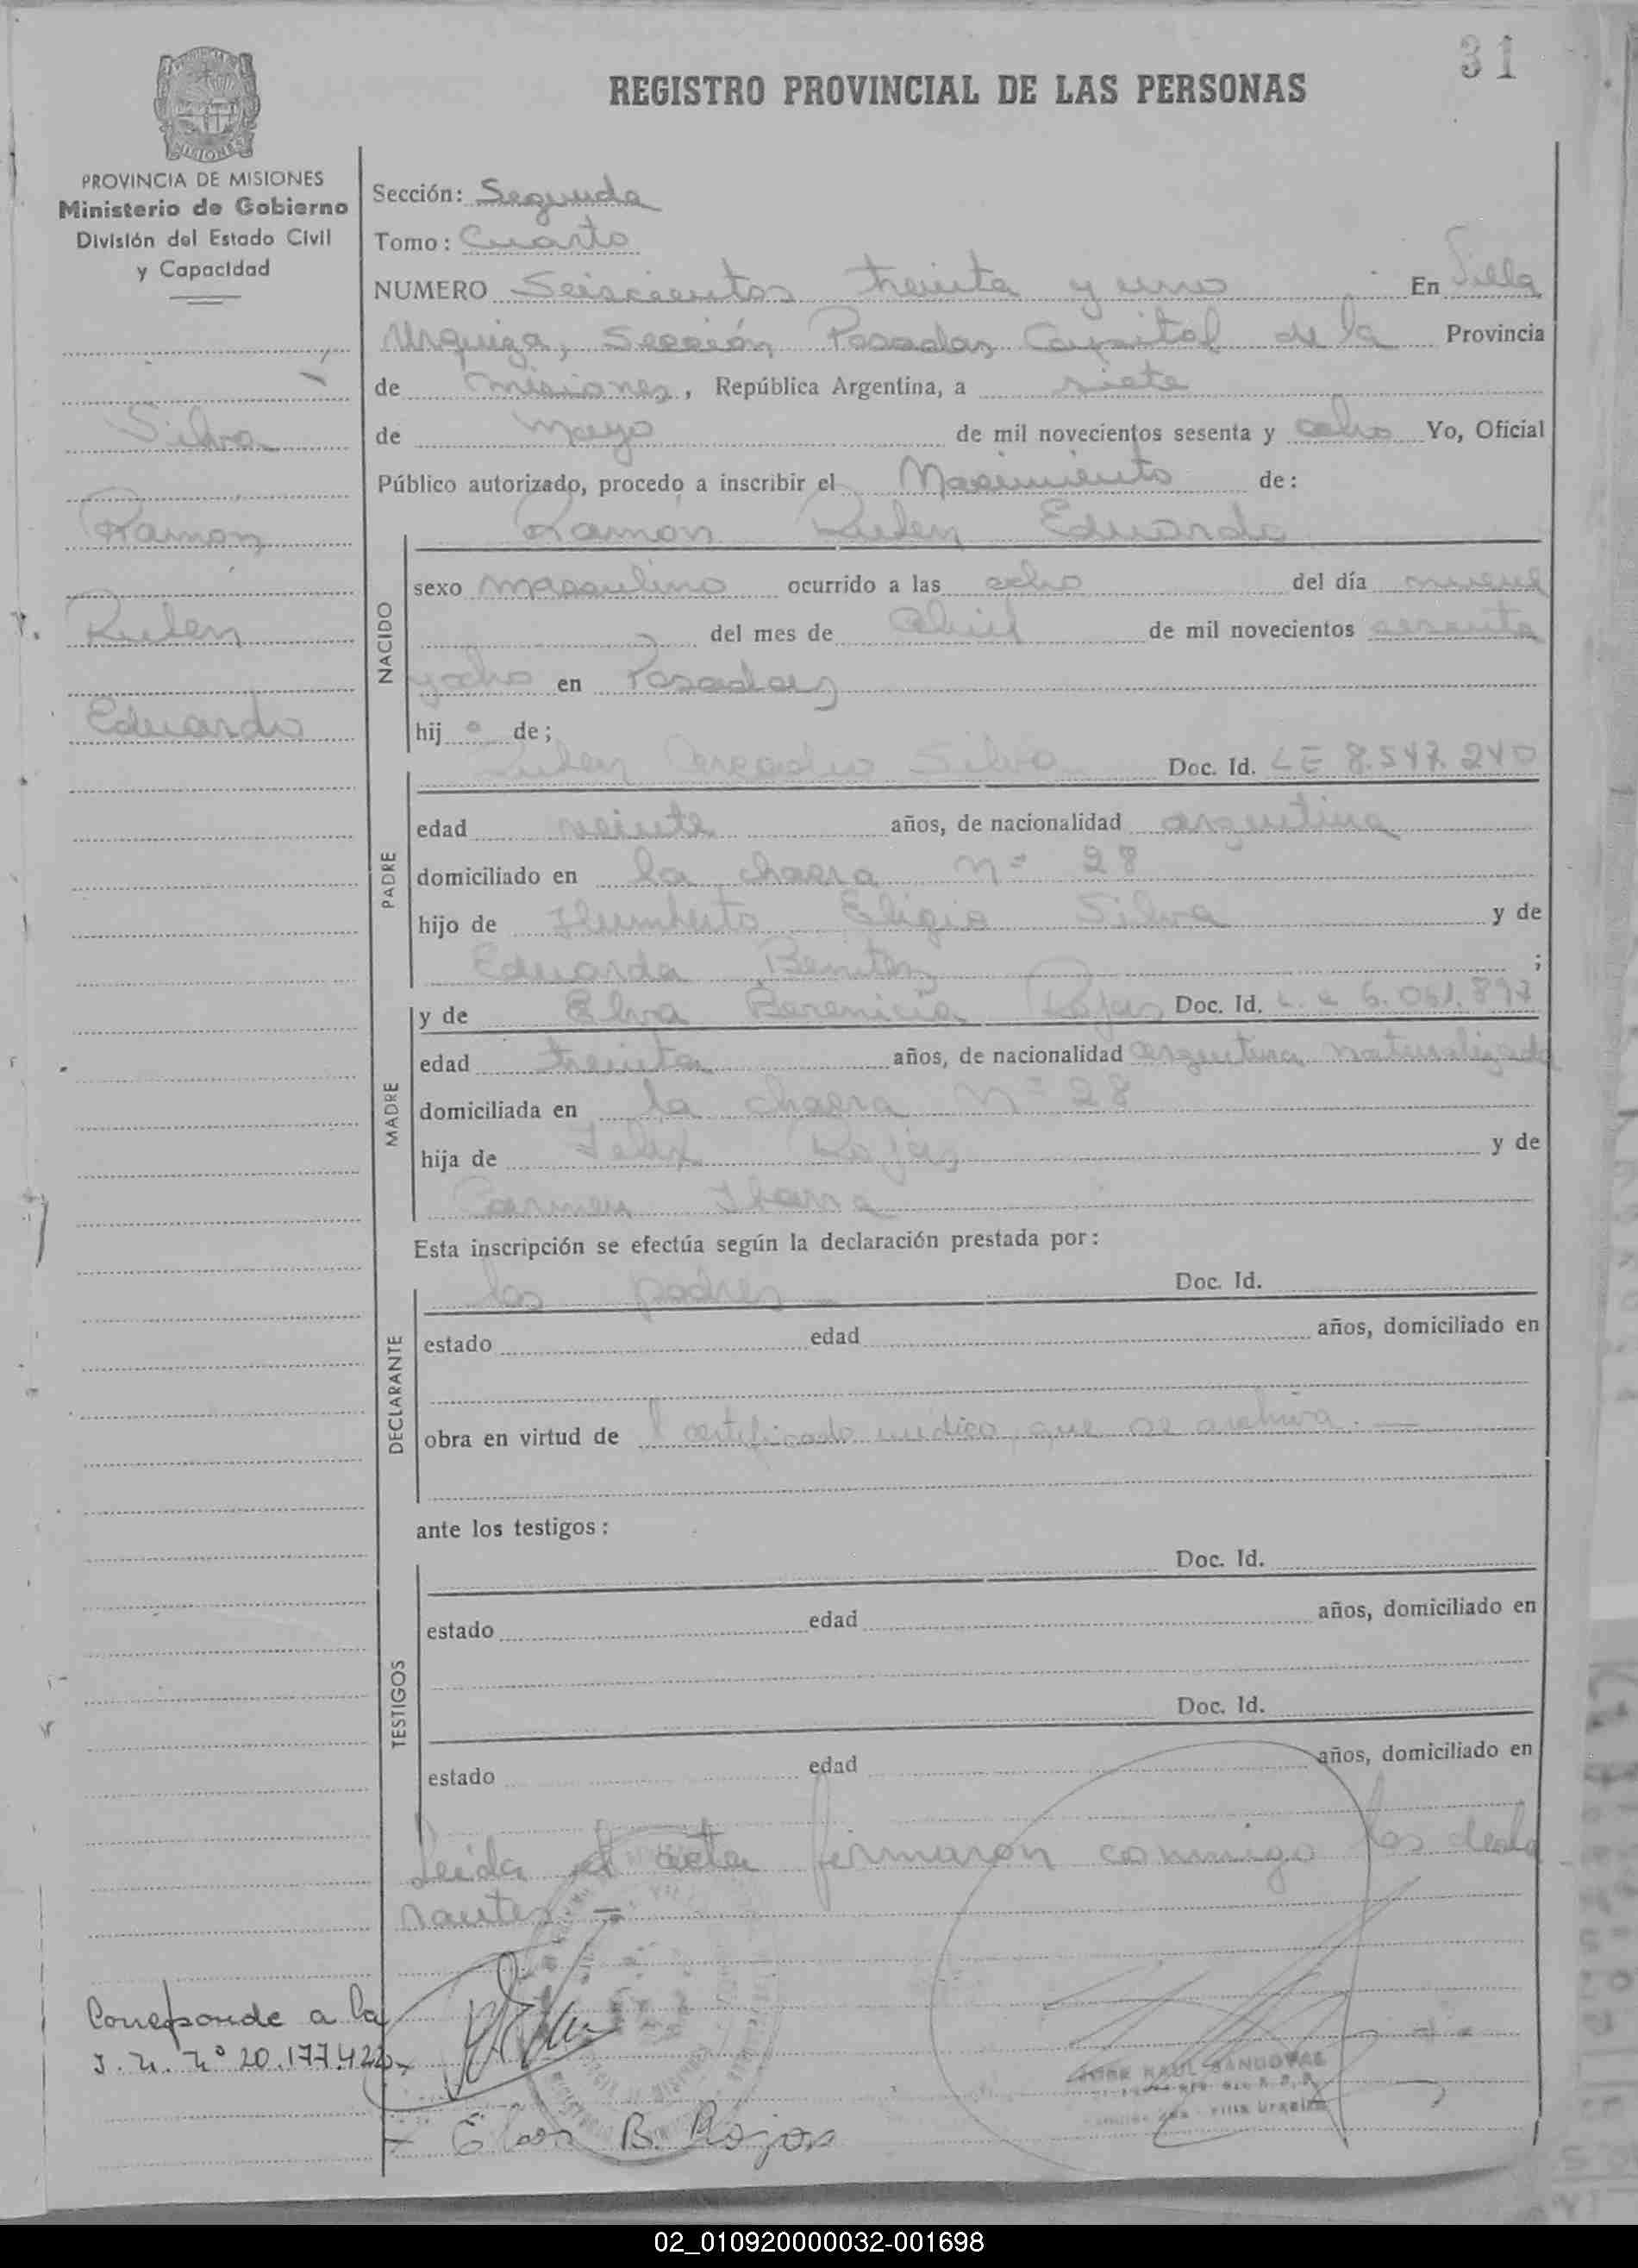 31
REGISTRO PROVINCIAL DE LAS PERSONAS
MISIONES
PROVINCIA DE MISIONES
Ministerio de Gobierno
División del Estado Civil
y Capacidad
Silva
Ramon
Ruben
Eduardo
Sección: Segunda
Tomo: Cuarto
NUMERO Seiscientos treinta y uno En Villa
Urquiza, Sección Posadas Capital de la Provincia
de Misiones, República Argentina, a siete
de mayo de mil novecientos sesenta y ocho Yo, Oficial
Público autorizado, procedo a inscribir el Nacimiento de:
Ramón Ruben Eduardo
NACIDO
sexo masculino ocurrido a las ocho del día nueve
del mes de Abril de mil novecientos sesenta
y ocho en Posadas
hij o de;
Ruben Arcadio Silva Doc. Id. LE 8.547.240
PADRE
edad veinte años, de nacionalidad argentina
domiciliado en la chacra Nº 28
hijo de Humberto Eligio Silva y de
Eduarda Benitez ;
y de Elva Berenicia Rojas Doc. Id. L.C 6.061.897
MADRE
edad treinta años, de nacionalidad argentina naturalizada
domiciliada en la chacra Nº 28
hija de Felix Rojas y de
Carmen Ibarra
Esta inscripción se efectúa según la declaración prestada por:
los padres Doc. Id.
DECLARANTE
estado edad años, domiciliado en
obra en virtud de l certificado médico que se archiva.—
ante los testigos:
Doc. Id.
TESTIGOS
estado edad años, domiciliado en
Doc. Id.
estado edad años, domiciliado en
Leida el acta firmaron conmigo los decla
rantes =
Corresponde a la
I. N. Nº 20.177.422
RAUL SANDOVAL
Villa Urquiza
Elva B. Rojas
02_010920000032-001698